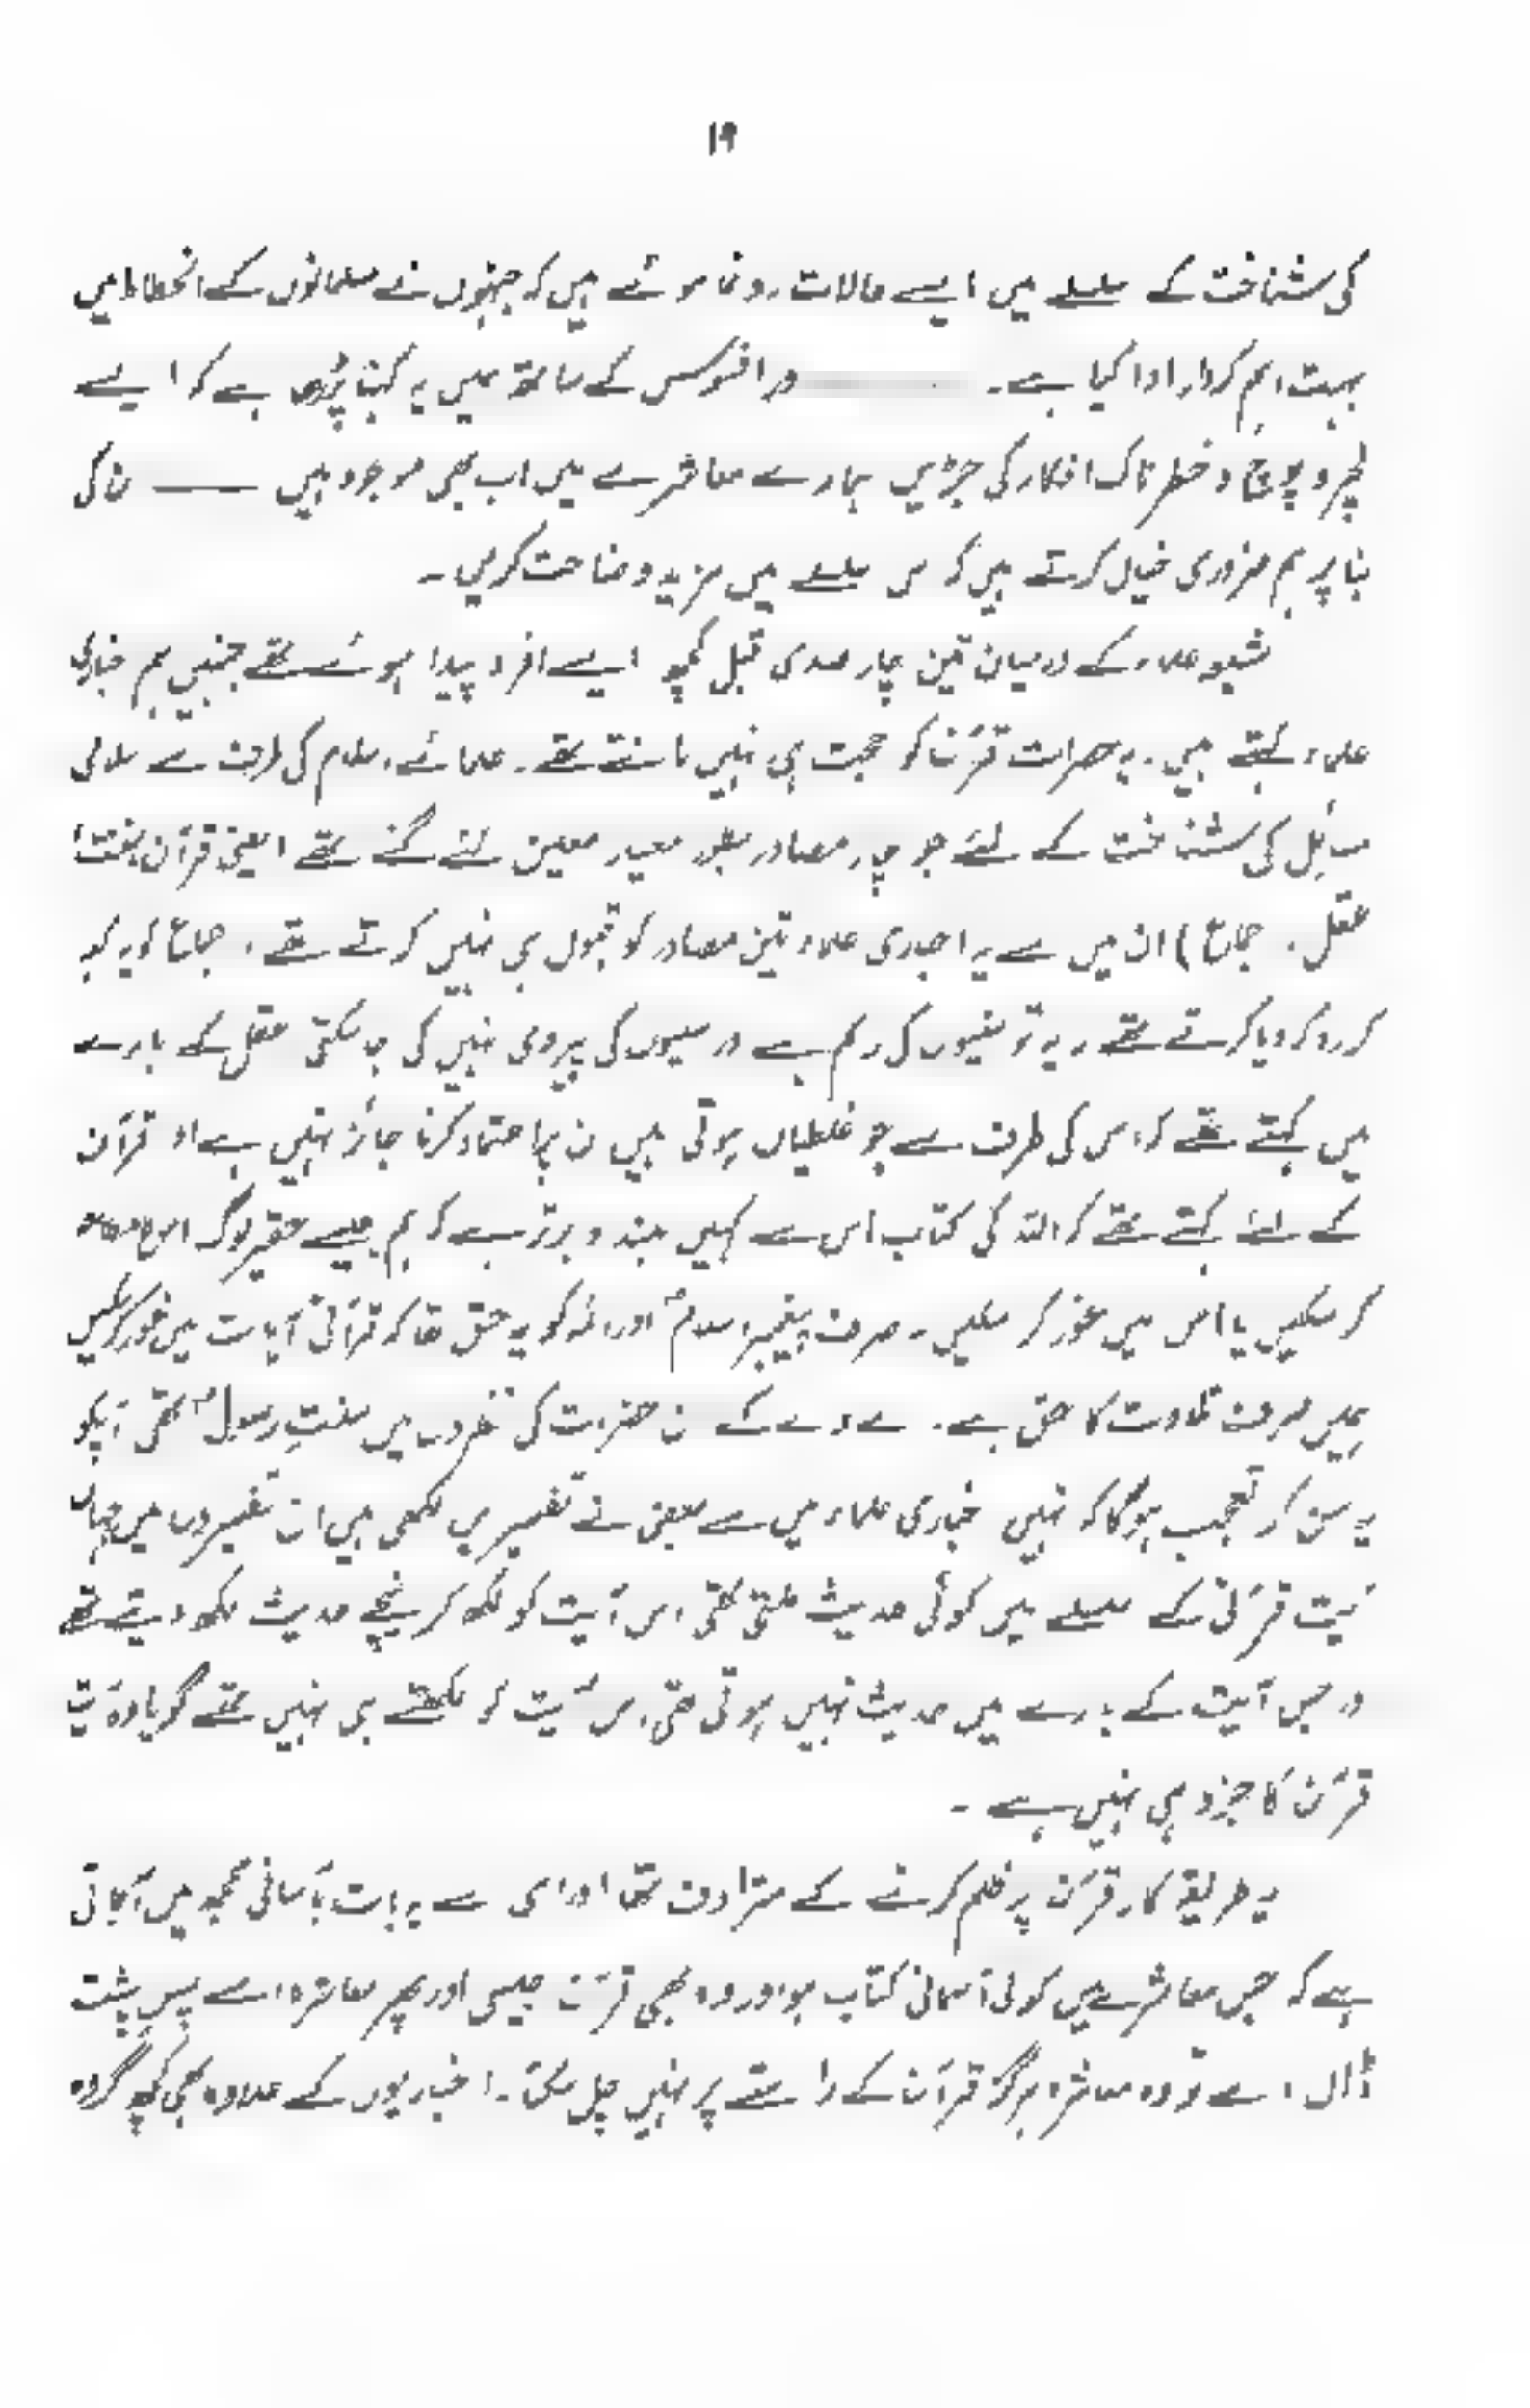 ۱۹
کی شناخت کے سلسلے میں ایسے حالات رونما ہوئے ہیں کہ جنہوں نے مسلمانوں کے انحطاط میں
بہت اہم کردار ادا کیا ہے۔ ور افسوس کے ساتھ ہمیں یہ کہنا پڑتا ہے کہ ایسے
لچر و پوچ و خطرناک افکار کی جڑیں ہمارے معاشرے میں اب بھی موجود ہیں —— ن کی
بنا پر ہم ضروری خیال کرتے ہیں کہ س سلسلے میں مزید وضاحت کریں۔
شیعہ علماء کے درمیان تین چار صدی قبل کچھ ایسے افراد پیدا ہوئے تھے جنہیں ہم خباری
علماء کہتے ہیں۔ یہ حضرات قرآن کو حجت ہی نہیں مانتے تھے۔ علمائے اسلام کی طرف سے سلامی
مسائل کی شناخت کے لئے جو چار مصادر بطور معیار معین کئے گئے تھے (یعنی قرآن، سنت،
عقل، جماع) ان میں سے یہ اخباری علماء تین مصادر کو قبول ہی نہیں کرتے تھے، جماع کو یہ کہہ
کر رد کر دیا کرتے تھے، یہ تو سنیوں کی رسم ہے ور سنیوں کی پیروی نہیں کی جا سکتی عقل کے بارے
میں کہتے تھے کہ اس کی طرف سے جو غلطیاں ہوتی ہیں ن پر اعتماد کرنا جائز نہیں ہے اور قرآن
کے لئے کہتے تھے کہ اللہ کی کتاب اس سے کہیں بلند و برتر ہے کہ ہم جیسے حقیر لوگ اس کا مطالعہ
کر سکیں یا اس میں غور کر سکیں۔ صرف پیغمبر اسلامؐ اور ائمہ کو یہ حق تھا کہ قرآنی آیات میں غور کر سکیں
ہمیں صرف تلاوت کا حق ہے۔ لے دے کے ن حضرات کی نظروں میں سنتِ رسولؐ تھی آپ کو
یہ سن کر تعجب ہوگا کہ نہیں خباری علماء میں سے بعض نے تفسیریں لکھی ہیں ان تفسیروں میں جہاں
آیت قرآنی کے سلسلے میں کوئی حدیث ملتی تھی اس آیت کو لکھ کر نیچے حدیث لکھ دیتے تھے
ور جس آیت کے بارے میں حدیث نہیں ہوتی تھی اس آیت کو لکھتے ہی نہیں تھے گویا وہ آیت
قرآن کا جزو ہی نہیں ہے۔
یہ طریقۂ کار قرآن پر ظلم کرنے کے مترادف تھا اور اسی سے یہ بات بآسانی سمجھ میں آجاتی
ہے کہ جس معاشرے میں کوئی آسمانی کتاب ہو اور وہ بھی قرآن جیسی اور پھر معاشرہ اسے پسِ پشت
ڈال دے تو وہ معاشرہ ہرگز قرآن کے راستے پر نہیں چل سکتا۔ اخباریوں کے علاوہ بھی کچھ گروہ